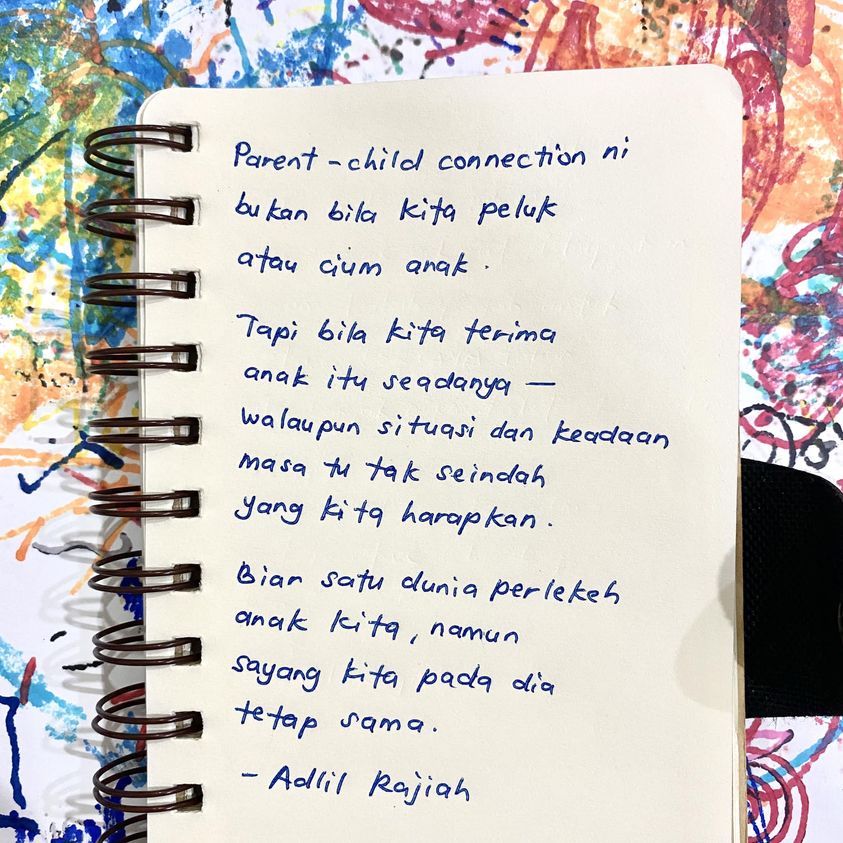 Parent - child connection ni
bukan bila kita peluk
atau cium anak.
Tapi bila kita terima
anak itu seadanya —
walaupun situasi dan keadaan
masa tu tak seindah
yang kita harapkan.
Biar satu dunia perlekeh
anak kita, namun
sayang kita pada dia
tetap sama.
- Adlil Rajiah